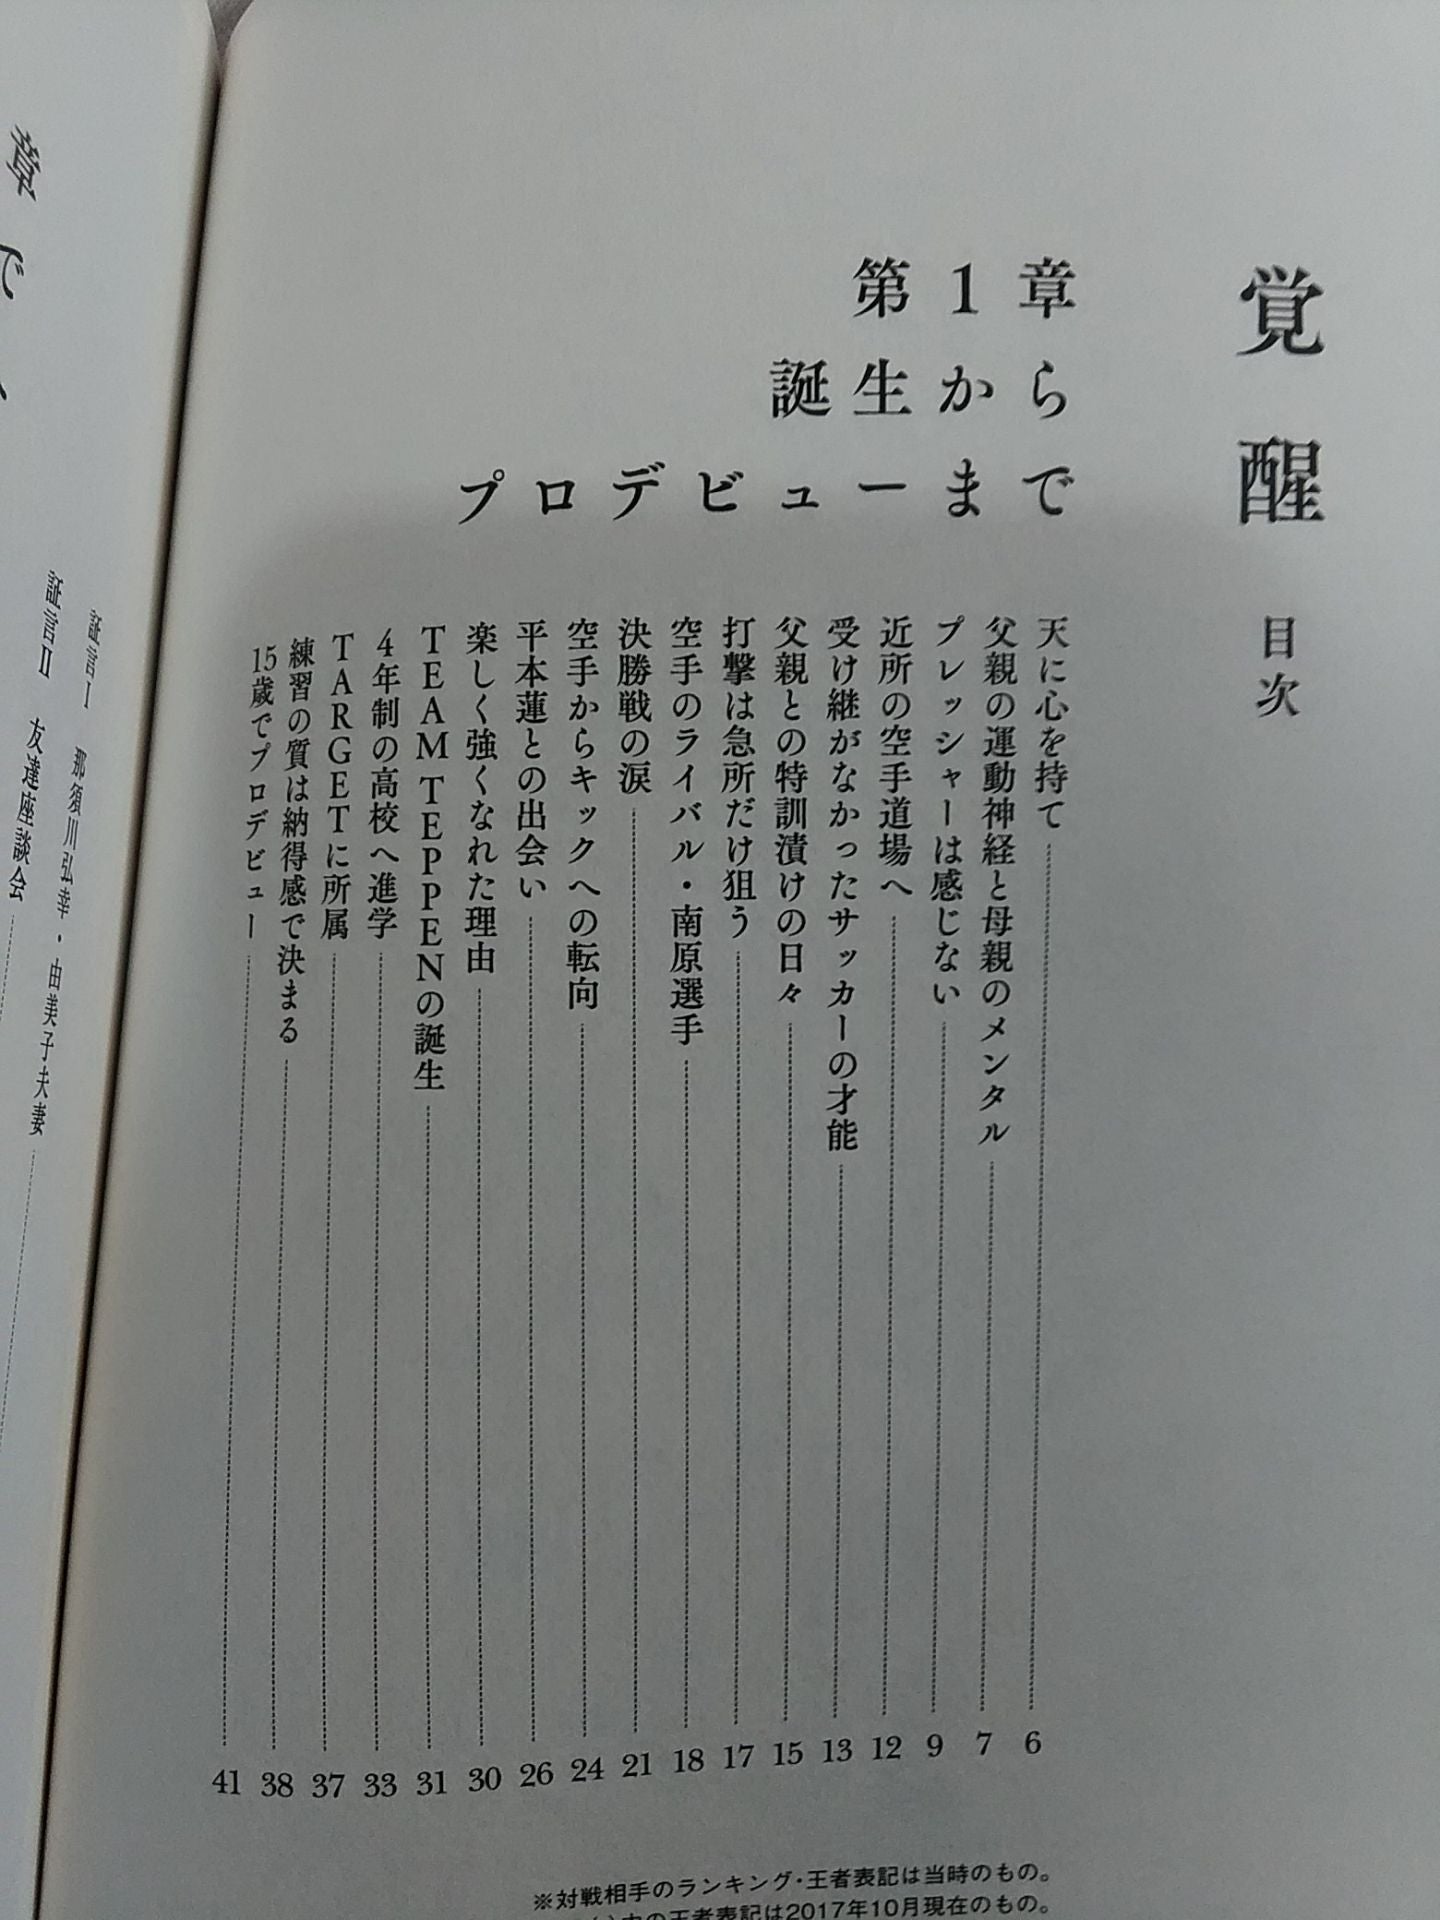 覚醒 目次
第1章
誕生から
プロデビューまで
天に心を持て 6
父親の運動神経と母親のメンタル 7
プレッシャーは感じない 9
近所の空手道場へ 12
受け継がなかったサッカーの才能 13
父親との特訓漬けの日々 15
打撃は急所だけ狙う 17
空手のライバル・南原選手 18
決勝戦の涙 21
空手からキックへの転向 24
平本蓮との出会い 26
楽しく強くなれた理由 30
TEAM TEPPENの誕生 31
4年制の高校へ進学 33
TARGETに所属 37
練習の質は納得感で決まる 38
15歳でプロデビュー 41
※対戦相手のランキング・王者表記は当時のもの。
の王者表記は2017年10月現在のもの。
証言Ⅰ 那須川弘幸・由美子夫妻
証言Ⅱ 友達座談会
章
で